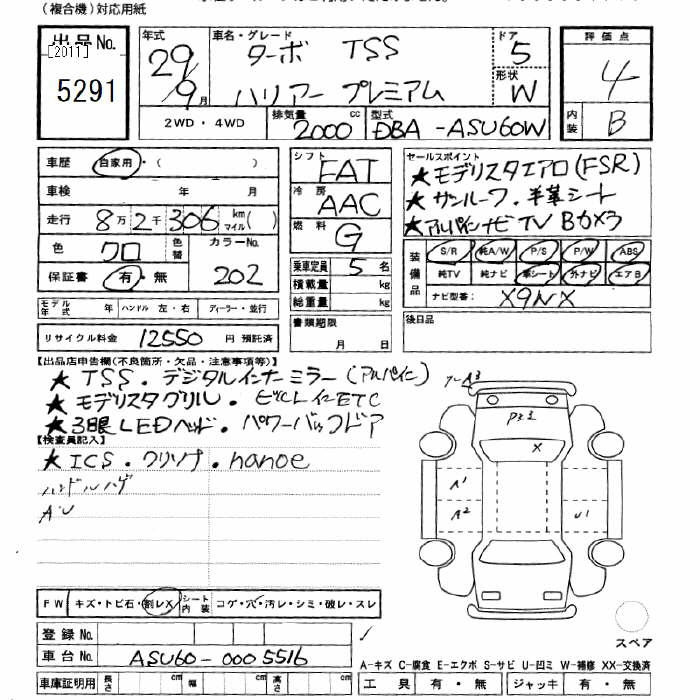 (複合機)対応用紙
出品No.
[2011]
5291
年式 29/9月
車名・グレード ターボ TSS
ハリアー プレミアム
ドア 5
形状 W
評価点 4
内装 B
2WD・4WD
排気量 2000 cc
型式 DBA-ASU60W
車歴 自家用・( )
車検 年 月
走行 8万2千306 km マイル( )
色 クロ 色替 カラーNo. 202
保証書 有・無
モデル年式 年 ハンドル 左・右 ディーラー・並行
リサイクル料金 12550 円 預託済
シフト FAT
冷房 AAC
燃料 G
乗車定員 5 名
積載量 kg
総重量 kg
書類期限 月 日
セールスポイント
★モデリスタエアロ(FSR)
★サンルーフ.半革シート
★アルパインナビ TV Bカメラ
装備品 S/R 純A/W P/S P/W ABS
純TV 純ナビ 革シート 外ナビ エアB
ナビ型番: X9NX
後日品
【出品店申告欄(不良箇所・欠品・注意事項等)】
★ TSS.デジタルインナーミラー(アルパイン)
★ モデリスタグリル.ビルトインETC
★ 3眼LEDヘッド.パワーバックドア
【検査員記入】
★ ICS.クリソナ.nanoe
ハンドルハゲ
AU
ア-A3
P±1
X
A1
A2
U1
FW キズ・トビ石・割レX シート内装 コゲ・穴・汚レ・シミ・破レ・スレ
登録No.
車台No. ASU60-0005516
車庫証明用 長さ cm 幅 cm 高さ cm
スペア
A-キズ C-腐食 E-エクボ S-サビ U-凹ミ W-補修 XX-交換済
工具 有・無 ジャッキ 有・無